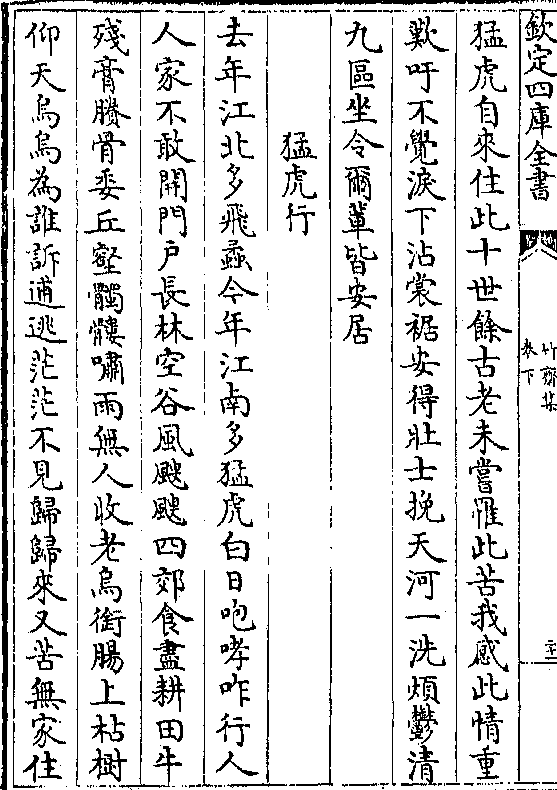 欽定四庫全書
竹齋集
卷下
猛虎自來住此十世餘古老未嘗罹此苦我感此情重
歎吁不覺淚下沾裳裾安得壯士挽天河一洗煩鬱清
九區坐令爾輩皆安居
猛虎行
去年江北多飛蝨今年江南多猛虎白日咆哮咋行人
人家不敢開門戶長林空谷風颼颼四郊食盡耕田牛
殘膏賸骨委丘壑髑髏嘯雨無人收老烏銜腸上枯樹
仰天烏烏為誰訴逋逃茫茫不見歸歸來又苦無家住